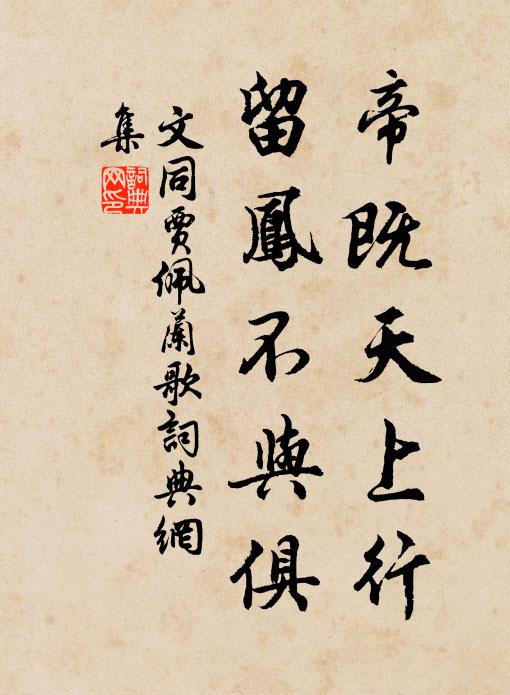 帝既天上行
留鳳不與俱
文同賈佩蘭歌詞典網
集
詞典
网印